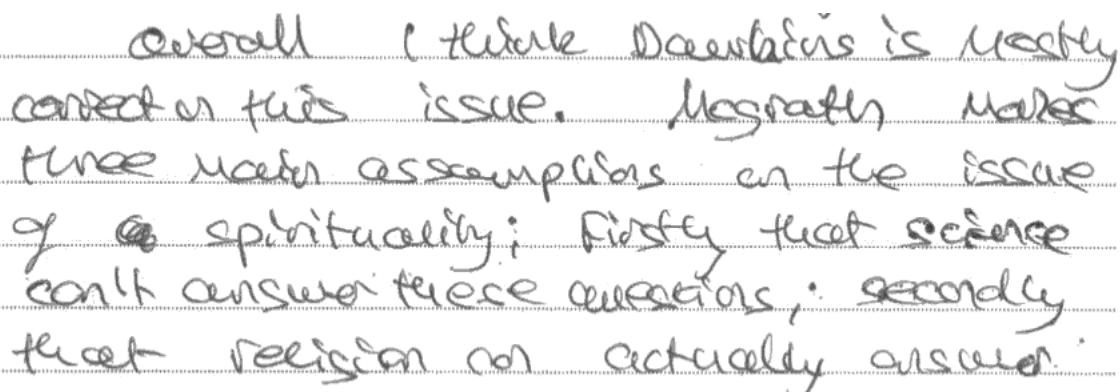 Overall I think Dawkins is mostly
correct on this issue. Mcgrath makes
three main assumptions on the issue
of spirituality; Firstly that science
can't answer these questions; secondly
that religion can actually answer.